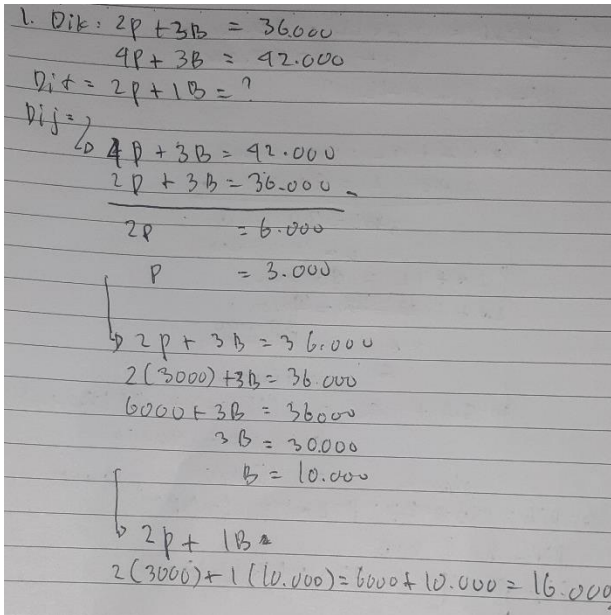 1. Dik: 2P + 3B = 36.000
4P + 3B = 42.000
Dit = 2P + 1B = ?
Dij =
4P + 3B = 42.000
2P + 3B = 36.000 -
2P = 6.000
P = 3.000
2P + 3B = 36.000
2(3000) + 3B = 36.000
6000 + 3B = 36000
3B = 30.000
B = 10.000
2P + 1B =
2(3000) + 1(10.000) = 6000 + 10.000 = 16.000